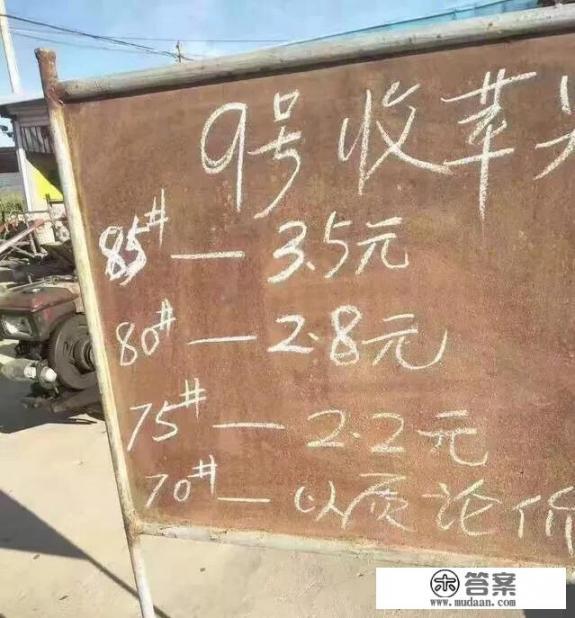 9号收苹
85# — 3.5元
80# — 2.8元
75# — 2.2元
70# — 以质论价
木答案
www.mudaan.com